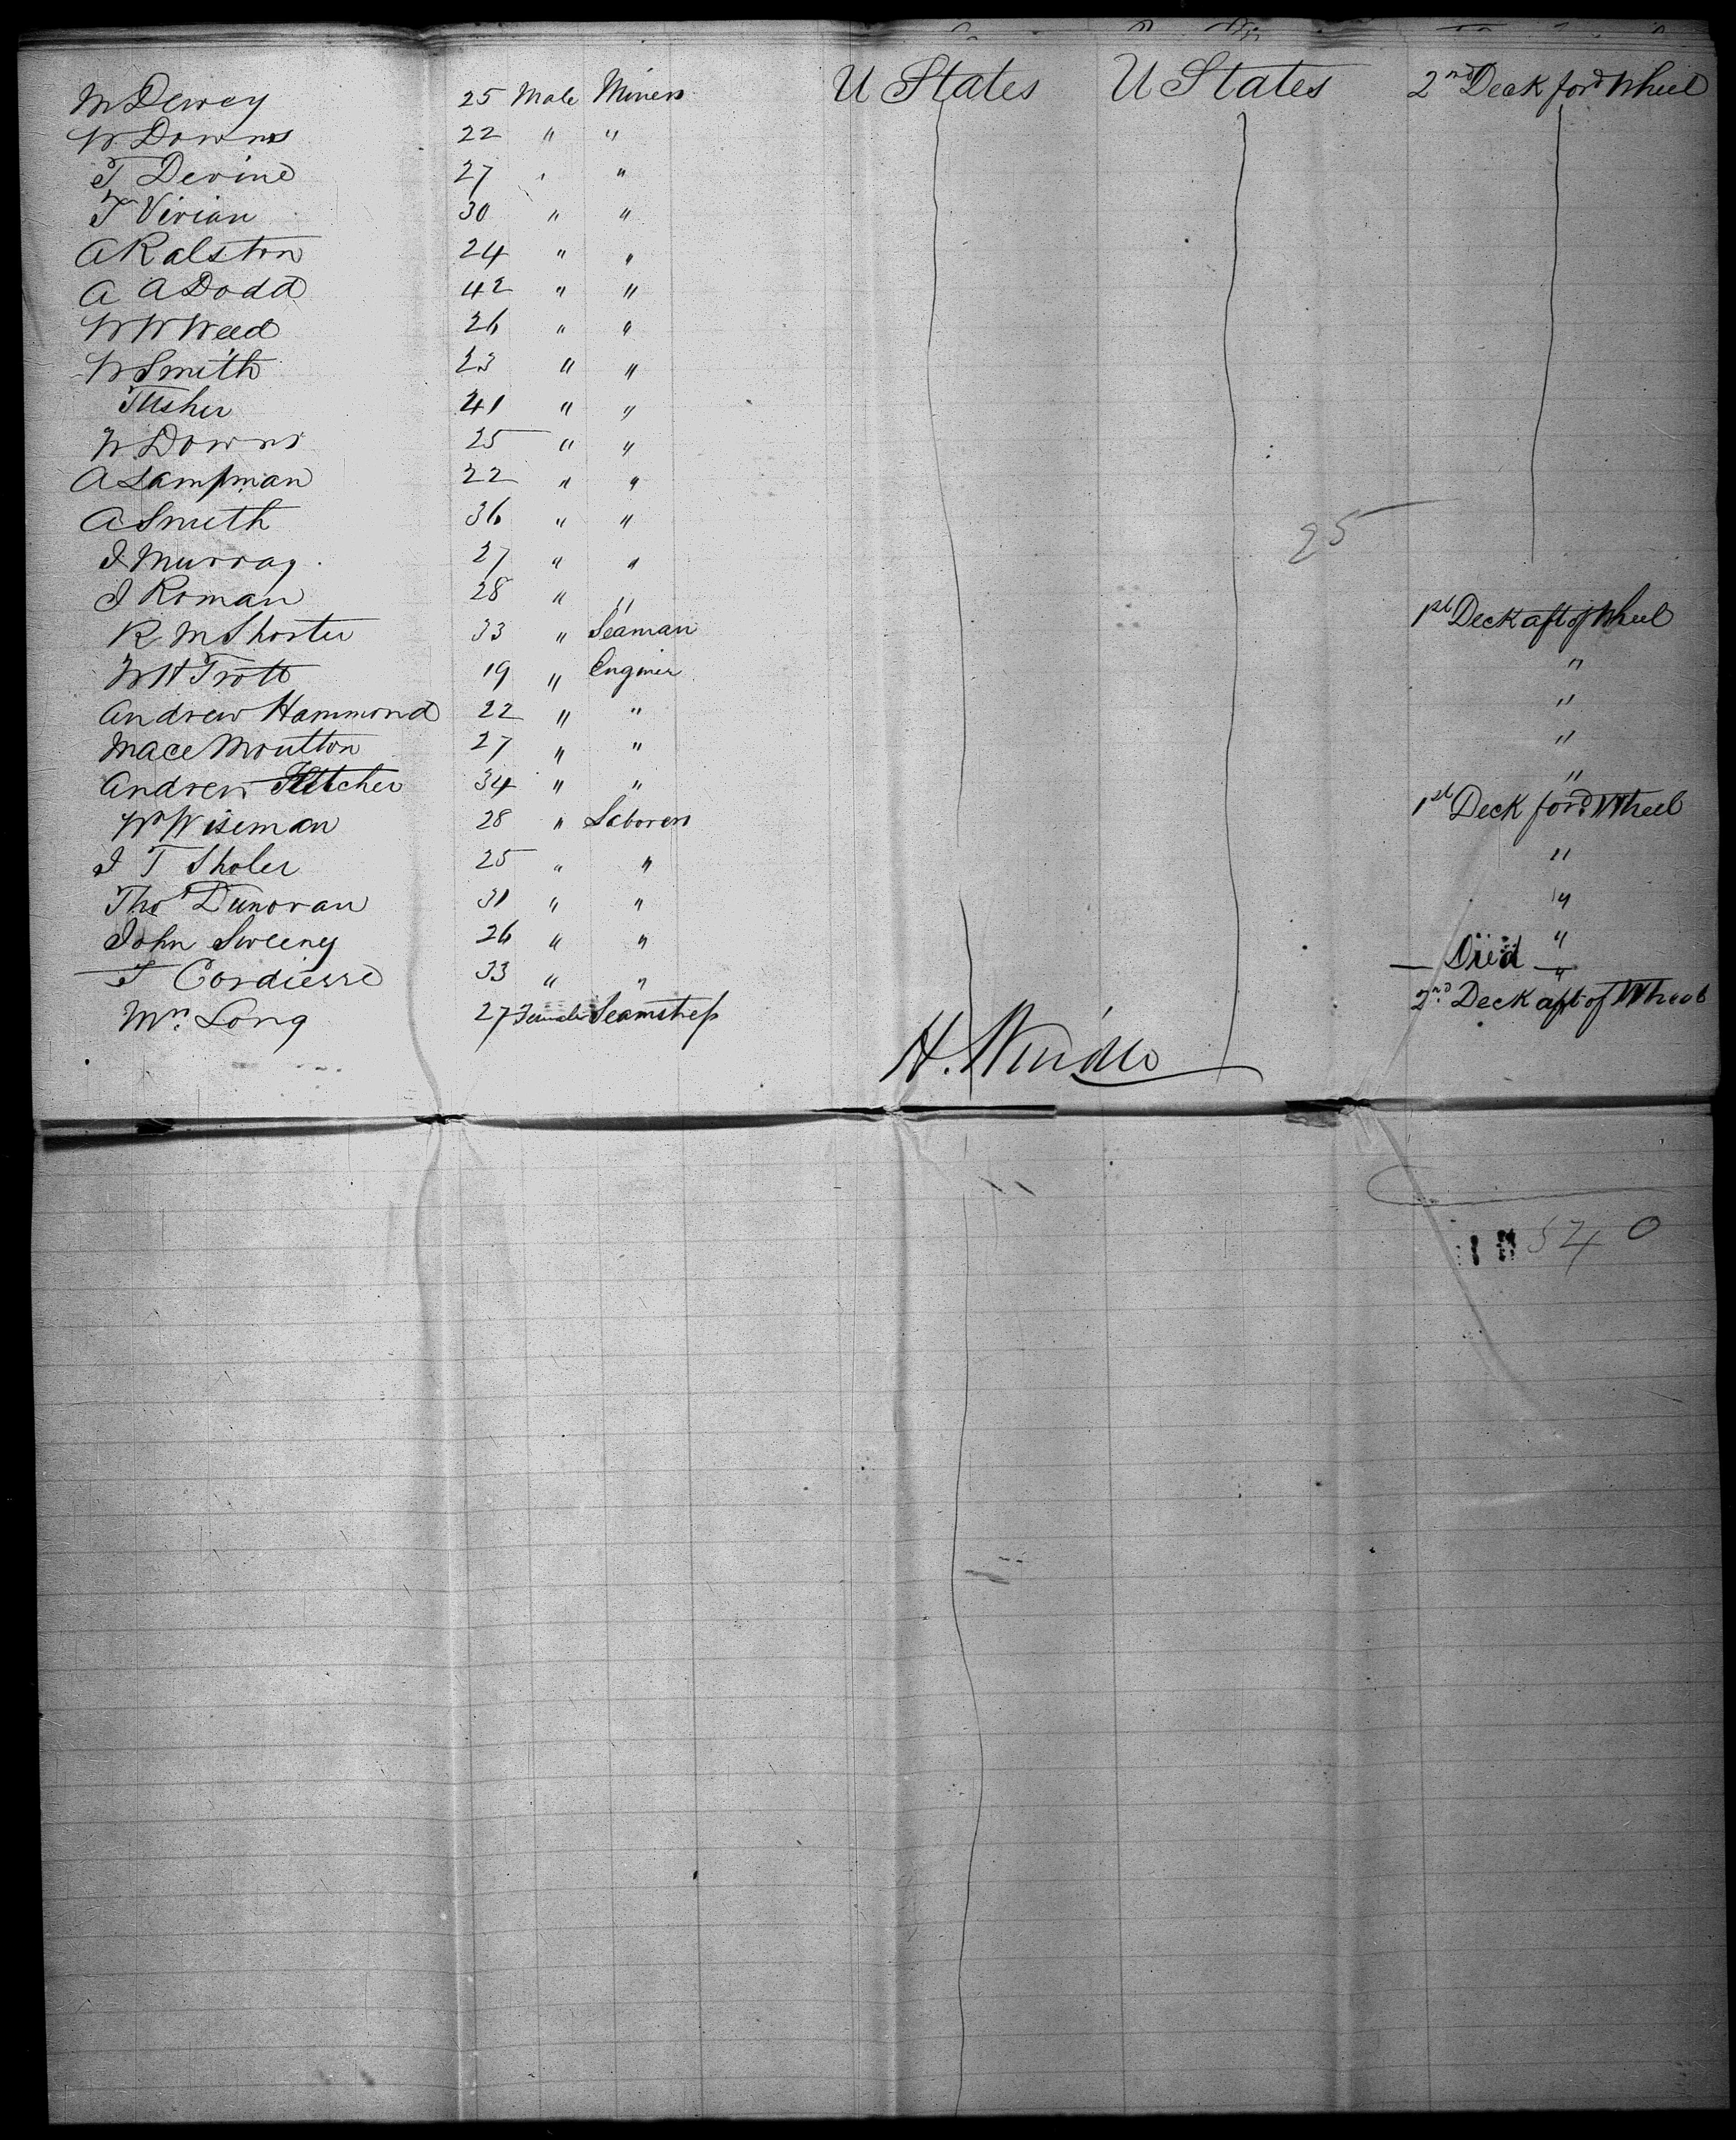 M Dewey 25 Male Miners U States U States 2nd Deck ford Wheel
W Downs 22 " "
T Devine 27 " "
T Vivian 30 " "
A Ralston 24 " "
A A Dodd 42 " "
W W Weed 26 " "
W Smith 23 " "
T Usher 41 " "
W Downs 25 " "
A Lampman 22 " "
A Smith 36 " "
25
J Murray 27 " "
J Roman 28 " "
R M Shorter 33 " Seaman 1st Deck aft of Wheel
W H Trott 19 " Enginier "
Andrew Hammond 22 " " "
Mace Moulton 27 " " "
Andrew Fletcher 34 " " "
Wm Wiseman 28 " Laborers 1st Deck ford Wheel
J T Sholer 25 " " "
Thos Dunovan 31 " " "
John Sweeny 26 " " "
T Cordiesse 33 " " Died "
Mrs. Long 27 Female Seamstress 2nd Deck aft of Wheel
H.
540